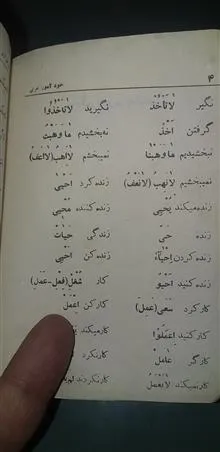 ۴ خود آموز عربی
نگیر لاتَأخُذْ نگیرید لاتَأخُذُوا
گرفتن اَخْذُ نمیبخشیدم ماوَهَبْتُ
نبخشیدیم ماوَهَبْنا نمیبخشم لااَهَبُ(لااَعْفُ)
نمیبخشیم لانَهَبُ (لانَعْفُ) زنده کرد اَحْیٰی
زنده میکند یُحْیی زنده کننده مُحْیی
زنده حَیّ زندگی حَیاتْ
زنده کردن اِحْیاء زنده کن اَحْیِ
زنده کنید اَحْیُو کار شُغْل(فِعْل-عَمَل)
کار کرد سَعیٰ(عَمِلَ) کارکن اِعْمَلْ
کار کنید اِعْمَلُوا کار میکند
کارگر عامِلْ کار نکرد
کار نمیکند لایَعْمَلُ کار نکردند